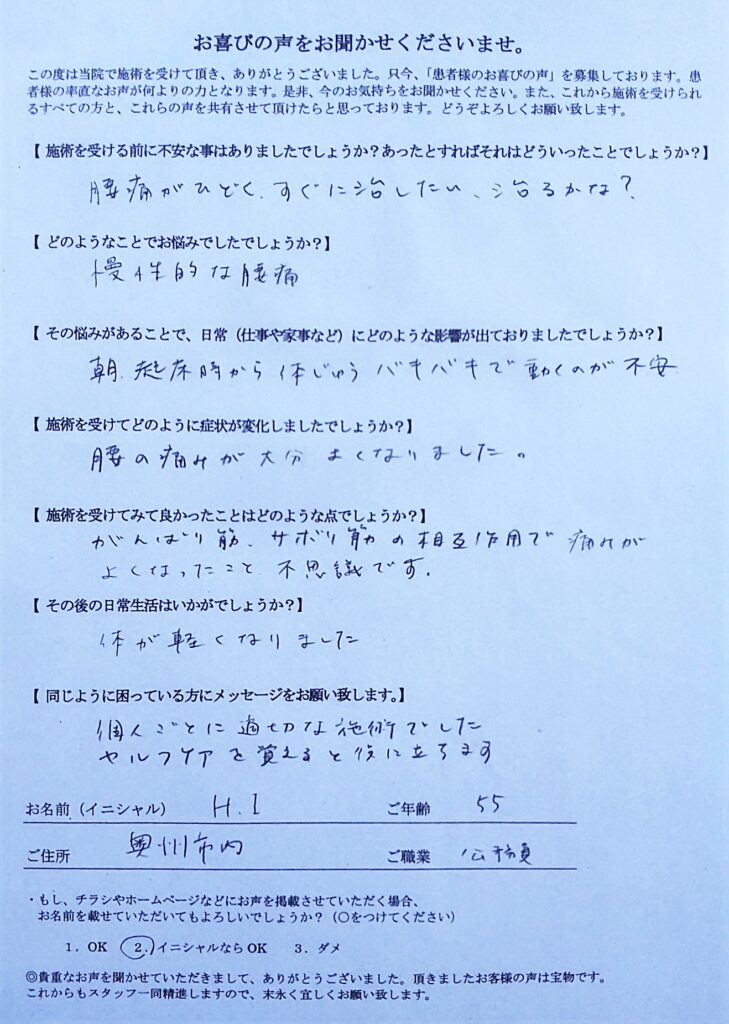 お喜びの声をお聞かせくださいませ。
この度は当院で施術を受けて頂き、ありがとうございました。只今、「患者様のお喜びの声」を募集しております。患
者様の率直なお声が何よりの力となります。是非、今のお気持ちをお聞かせください。また、これから施術を受けられ
るすべての方と、これらの声を共有させて頂けたらと思っております。どうぞよろしくお願い致します。
【 施術を受ける前に不安な事はありましたでしょうか?あったとすればそれはどういったことでしょうか?】
腰痛がひどく、すぐに治したい、治るかな?
【 どのようなことでお悩みでしたでしょうか?】
慢性的な腰痛
【 その悩みがあることで、日常（仕事や家事など）にどのような影響が出ておりましたでしょうか?】
朝、起床時から体じゅうバキバキで動くのが不安
【 施術を受けてどのように症状が変化しましたでしょうか?】
腰の痛みが大分よくなりました。
【 施術を受けてみて良かったことはどのような点でしょうか?】
がんばり筋、サボリ筋の相互作用で痛みが
よくなったこと 不思議です。
【 その後の日常生活はいかがでしょうか?】
体が軽くなりました
【 同じように困っている方にメッセージをお願い致します。】
個人ごとに適切な施術でした
セルフケアを覚えると役に立ちます
お名前（イニシャル） H.I ご年齢 55
ご住所 奥州市内 ご職業 公務員
・もし、チラシやホームページなどにお声を掲載させていただく場合、
お名前を載せていただいてもよろしいでしょうか?（○をつけてください）
1．OK 2．イニシャルなら OK 3．ダメ
◎貴重なお声を聞かせていただきまして、ありがとうございます。頂きましたお客様の声は宝物です。
これからもスタッフ一同精進しますので、末永く宜しくお願い致します。